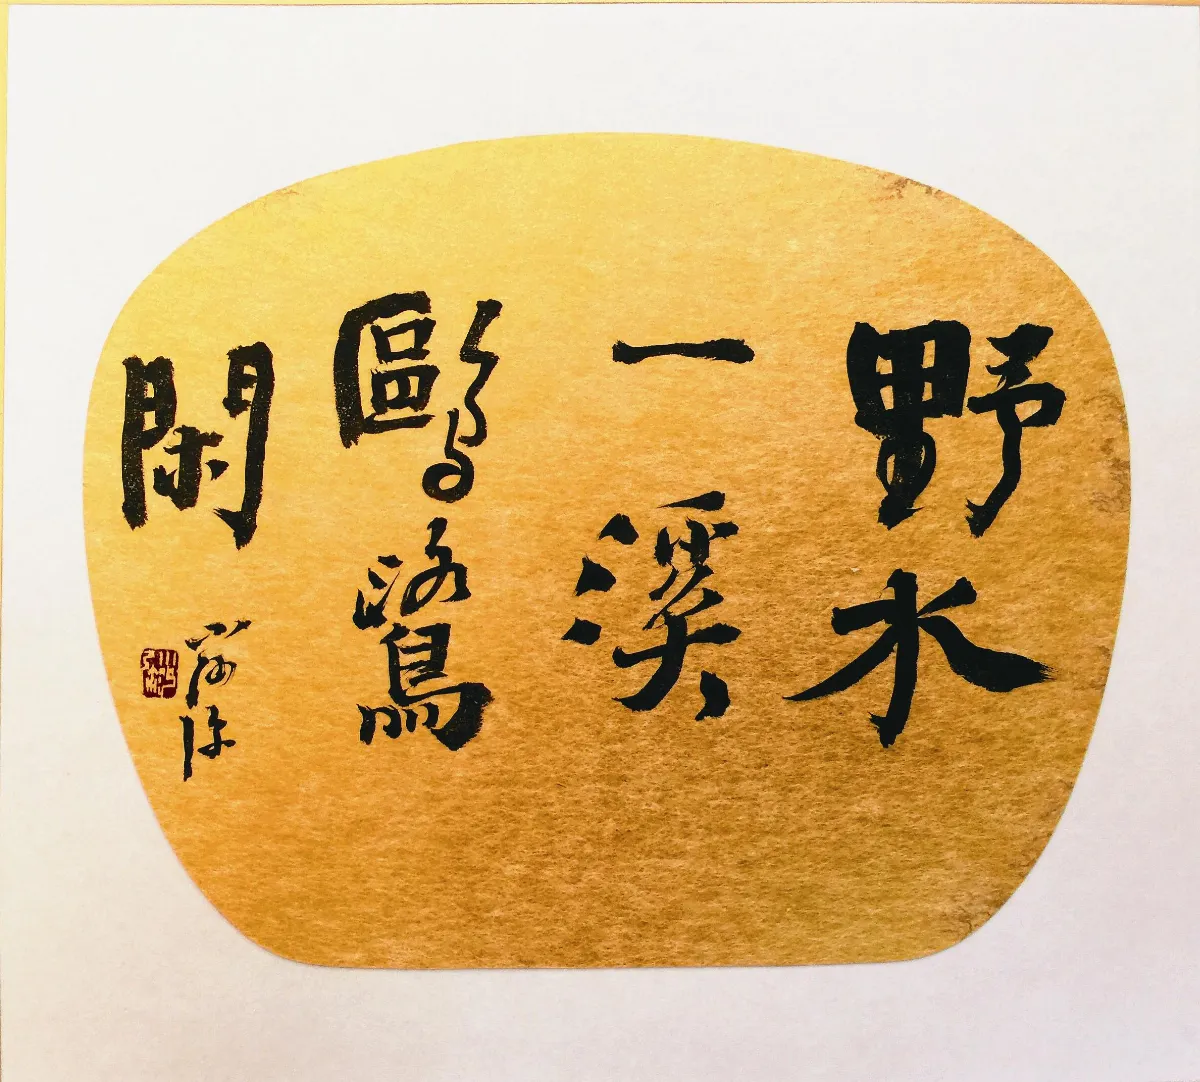 野水
一溪
鷗鷺
閑